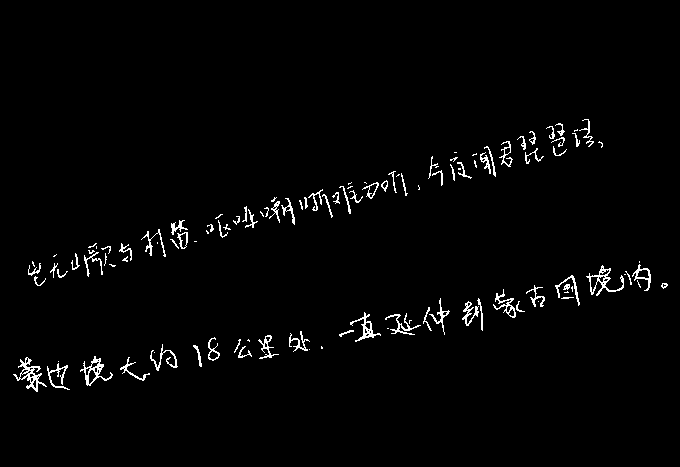 岂无山歌与村笛.呕哑嘲哳难为听.今夜闻君琵琶语、
蒙边境大约18公里处.一直延伸到蒙古国境内。